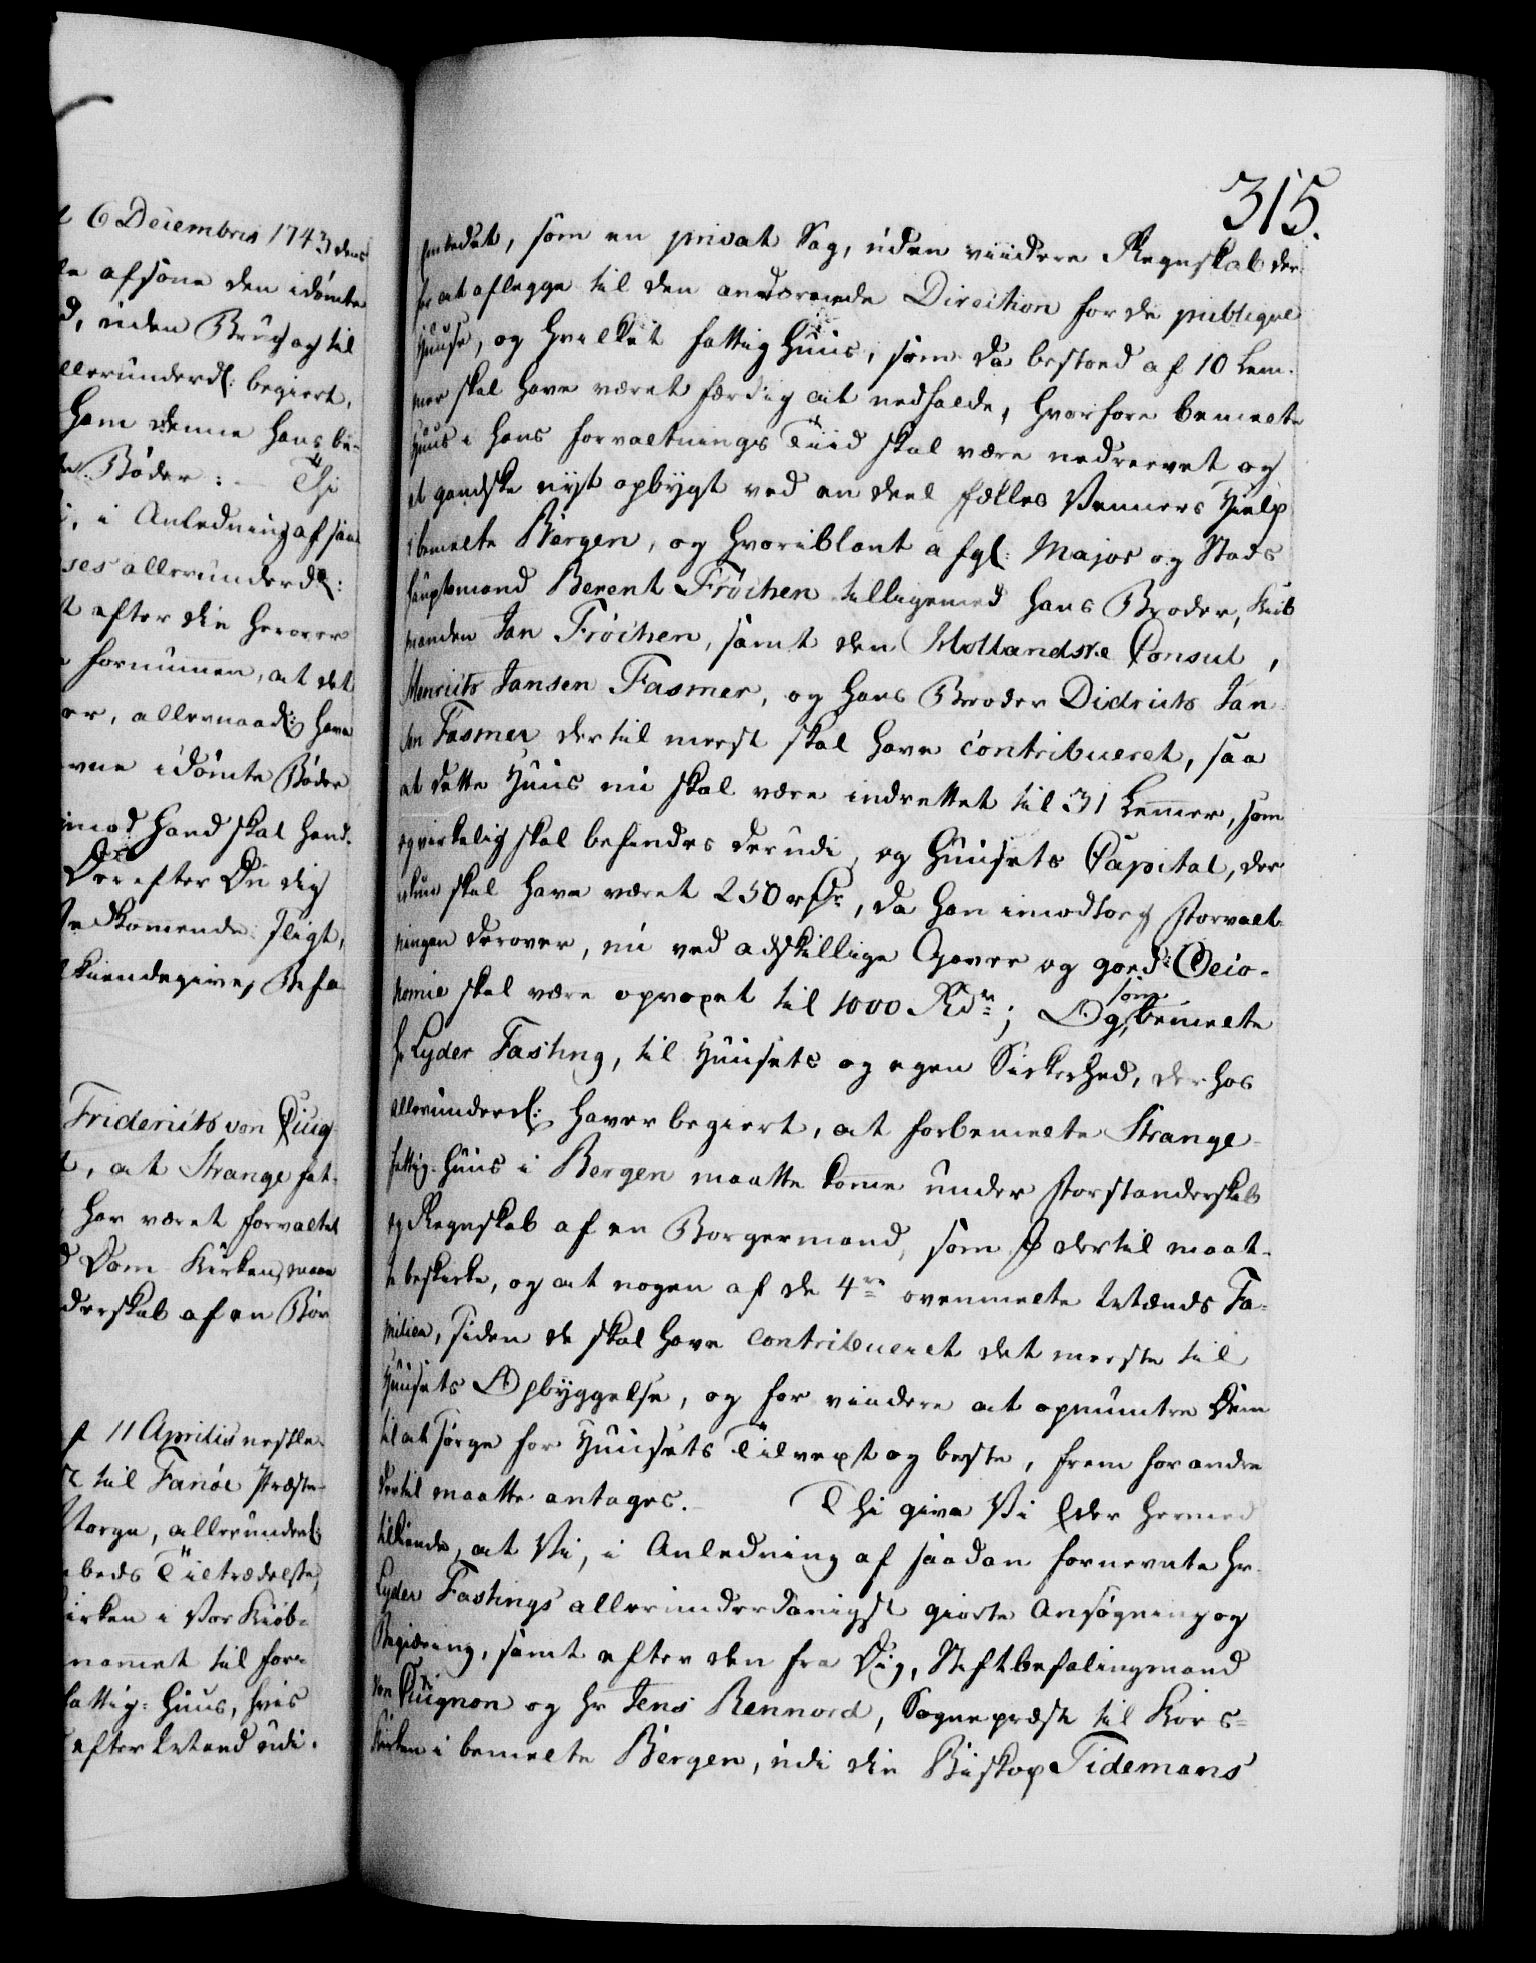 6 Decembris 1743 dens
afsone den idömte
uden Brug og til
allerunderd: begiert,
ham denne hans be-
Böder: Thi
i Anledning af saa-
allerunderd:
efter din herover
fornummen, at det
allernaad: have
idömte Böder
imod hand skal hand-
Derefter Du dig
Vedkommende sligt,
kiendegive, Befa
Friderichs von Cuig
at Strange fat-
har været forvaltet
Dom Kirken, maa
derskab af en Bor
11 Aprilis nestle-
til Fanöe Præste-
Norge, allerunderd:
beds Tiltrædelse,
Kirken i Vor Kiöb-
nammet til for-
fattig-Huus, hvis
efter Estand udi.
315.
Embedet, som en privat Sag, uden viidere Regnskab der-
for at aflegge til den anordnede Direction for de publique
Huuse, og hvilket fattig Huus, som da bestoed af 10 Lem-
mer skal have været færdig at nedfalde, hvorfore bemelte
Huus i hans forvaltnings Tiid skal være nedrevet og
et gandske nyt opbygt ved en deel fælles Venners Hielp
i bemelte Bergen, og hvoriblant afgl: Major og Stads
hauptmand Berent Fröchen tilligemed hans Broder, Kiöb
manden Jan Fröchen, samt den Hollandske Consul,
Henrich Jansen Fasmer, og hans Broder Didrich Jan
sen Fasmer dertil meest skal have contribueret, saa
at dette Huus nu skal være indrettet til 31 Lemmer, som
og virkelig skal befindes derudi, og Huusets Capital, der
ikkun skal have været 250 rdr, da han imodtog Forvalt-
ningen derover, nu ved adskillige Gaver og goed Oeco-
nomie skal være opvoxet til 1000 Rdr; Og som bemelte
Hr Lyder Fasting, til Huusets og egen Sickerhed, derhos
allerunderd: haver begiert, at forbemelte Strange-
fattig-Huus i Bergen maatte komme under Forstanderskab
og Regnskab af en Borgermand, som I dertil maat-
te beskicke, og at nogen af de 4re ovenmelte Mænds Fa-
milier, siden de skal have contribueret det meeste til
Huusets Opbyggelse, og for viidere at opmuntre dem
til at sörge for Huusets Tilvext og beste, frem for andre
dertil maatte antages. Thi give Vi Eder hermed
tilkiende, at Vi, i Anledning af saadan fornevnte Hr.
Lyder Fastings allerunderdanigst giorte Ansögning og
Begiæring, samt efter den fra Dig, Stiftbefalingmand
von Cuignon og Hr Jens Rennord, Sognepræst til Kors-
Kirken i bemelte Bergen, udi din Biskop Tidemans